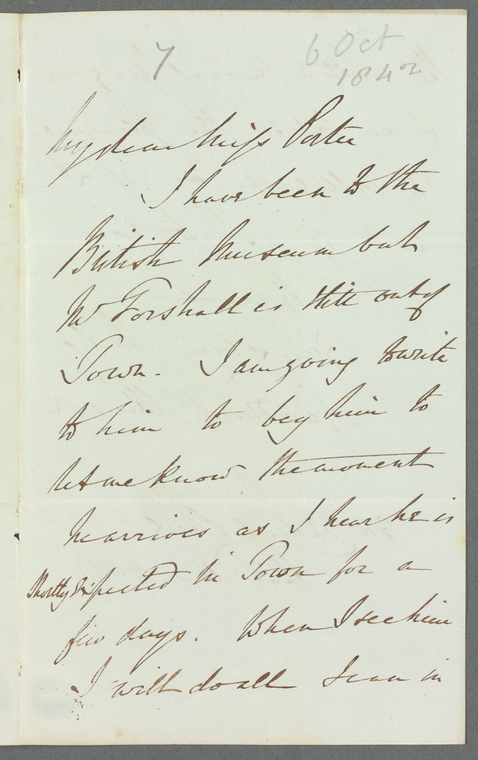 7
6 Oct
1842
My dear Miss Porter
I have been to the
British Museum but
Mr Forshall is still out of
Town. I am going to write
to him to beg him to
let me know the moment
he arrives as I hear he is
shortly expected in Town for a
few days. When I see him
I will do all I can in